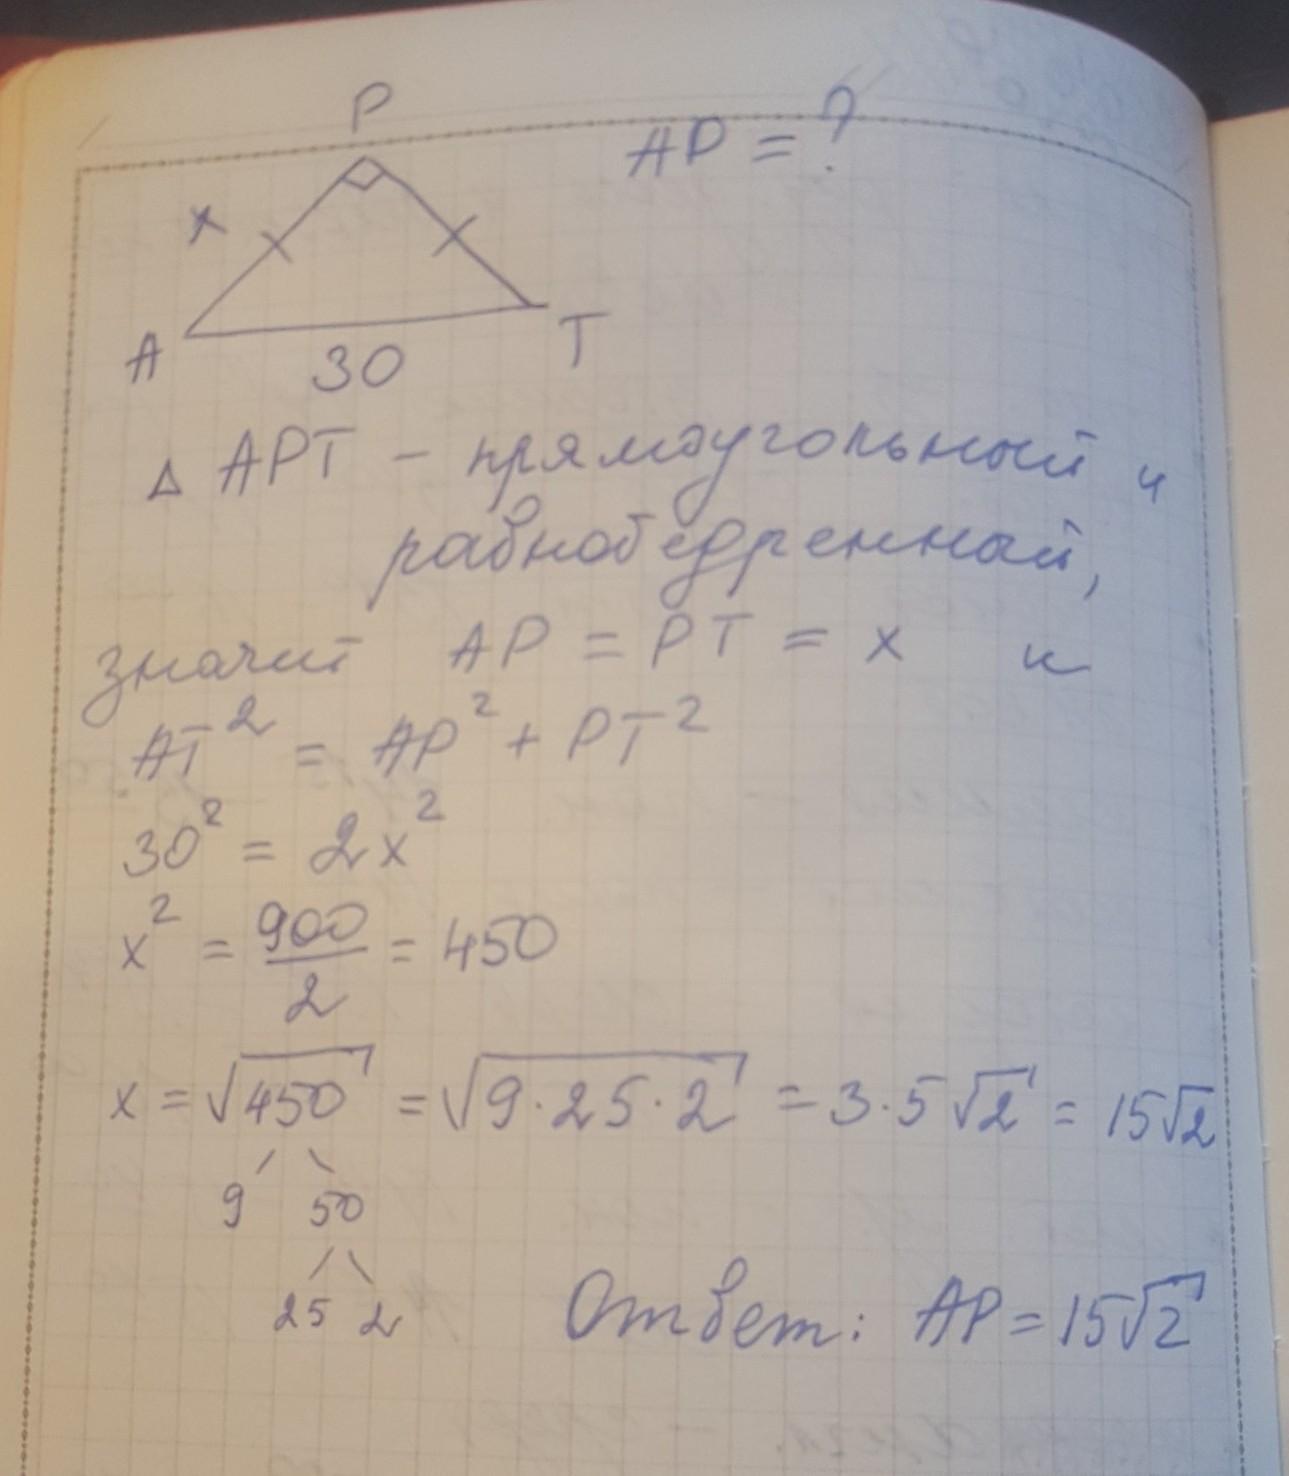 P
AP = ?
x
A
30
T
△ APT – прямоугольный и
равнобедренный,
значит AP = PT = x и
AT² = AP² + PT²
30² = 2x²
x² = 900/2 = 450
x = √450 = √9·25·2 = 3·5√2 = 15√2
9 50
25 2
Ответ: AP = 15√2